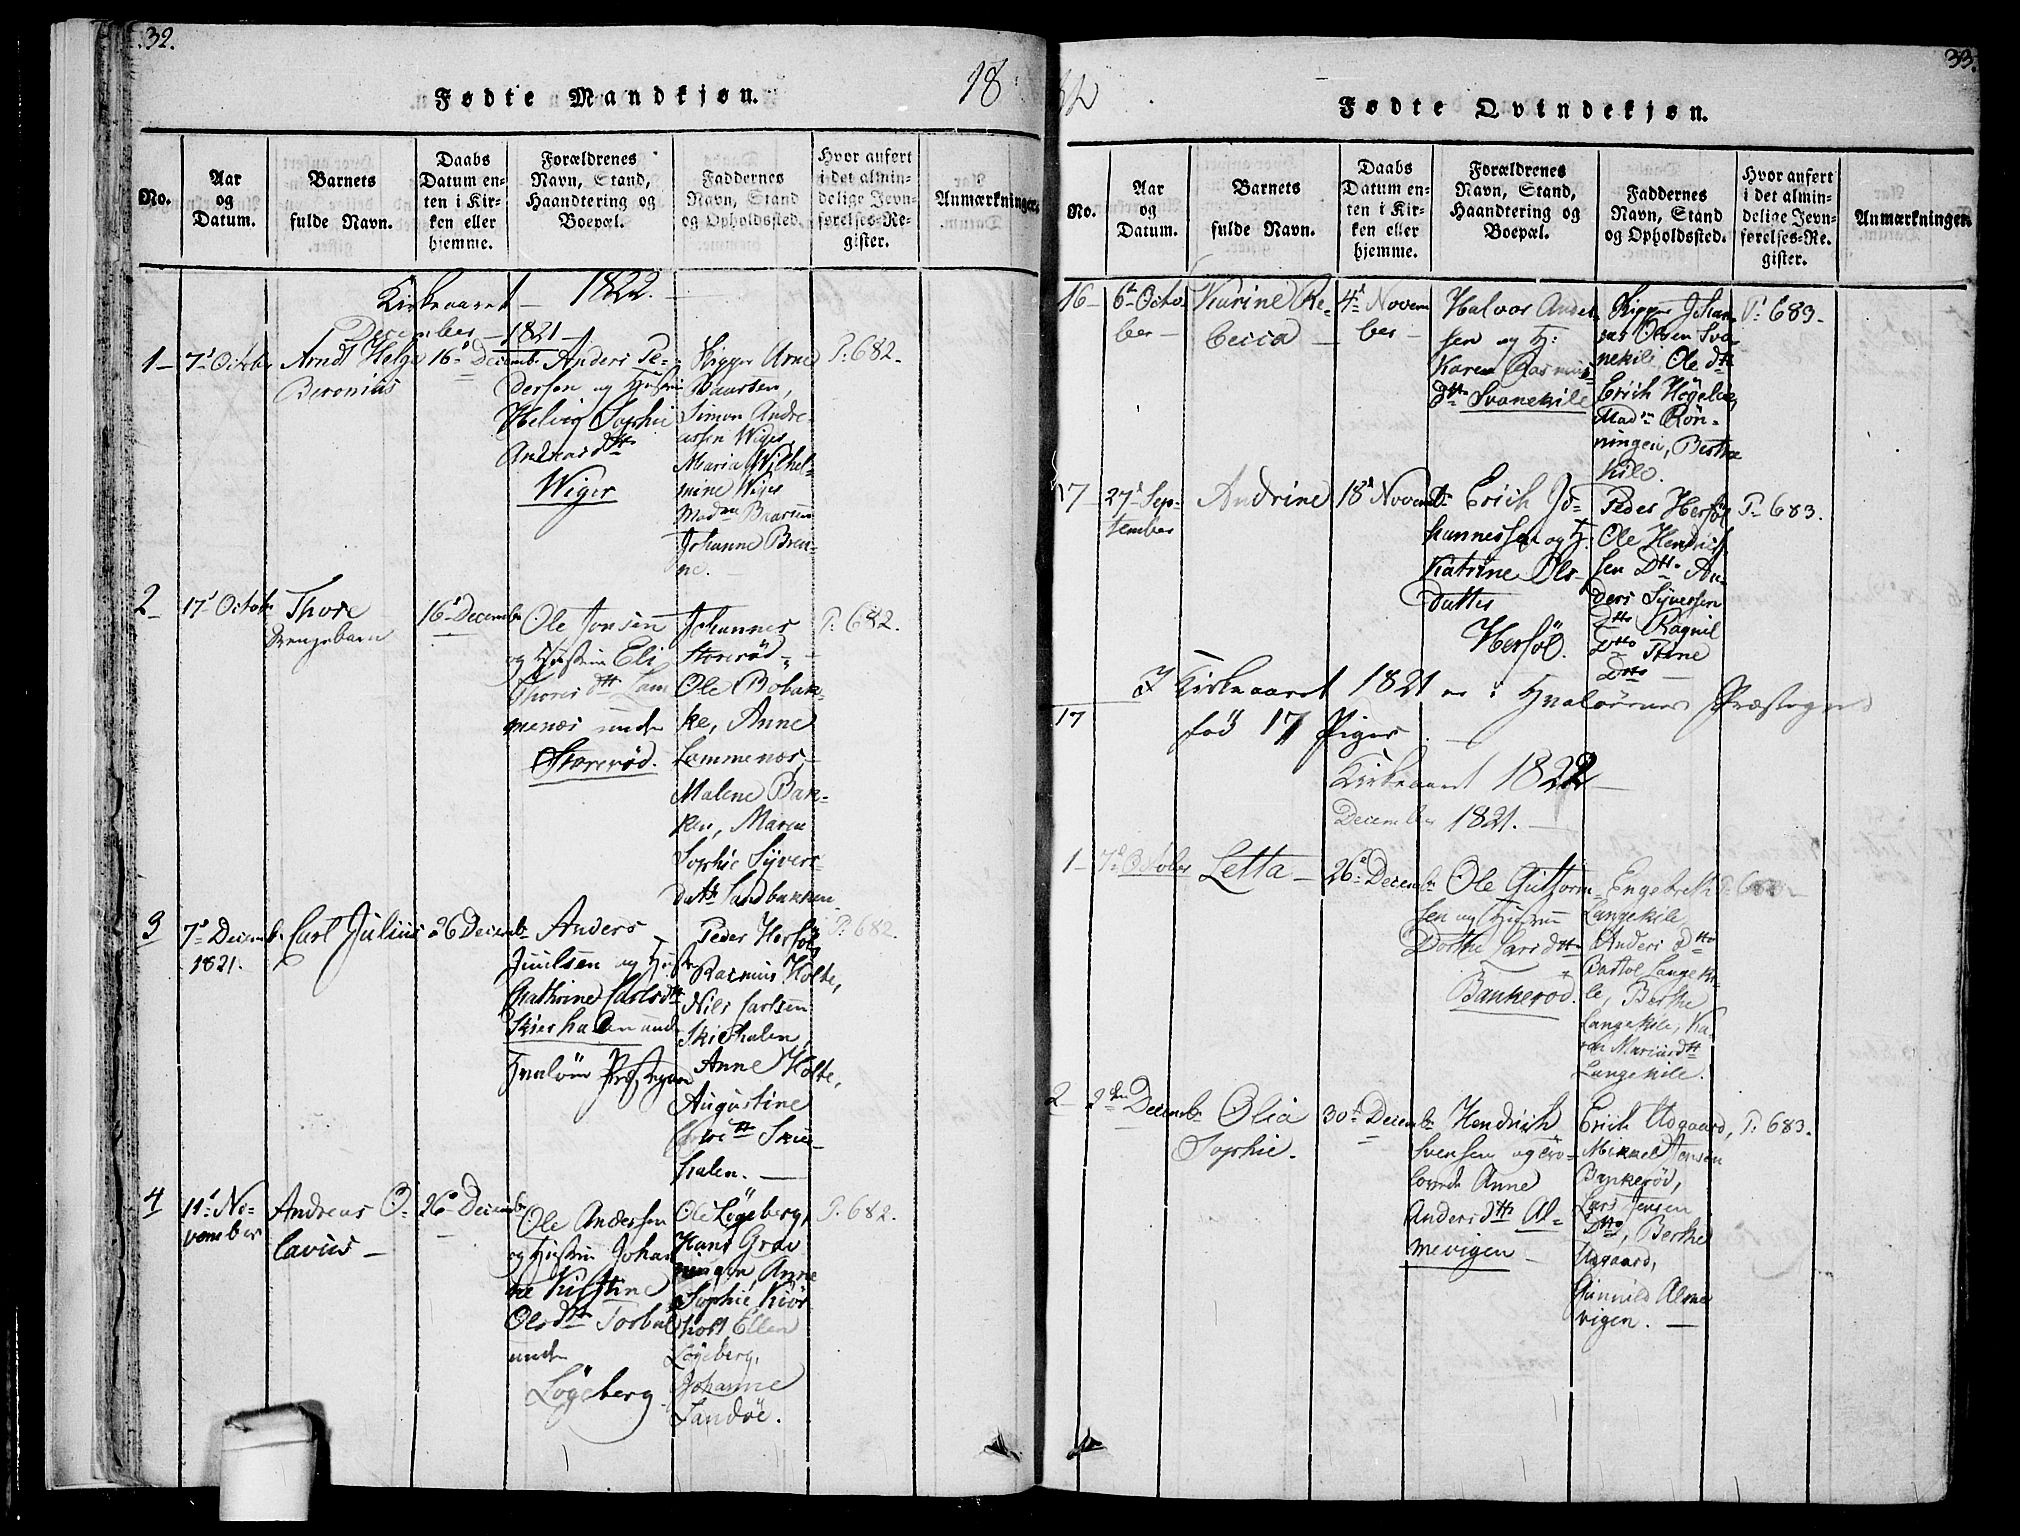 32.
18
Fødte Mandkjøn.
No.
Aar
og
Datum.
Barnets
fulde Navn.
Daabs
Datum en-
ten i Kir-
ken eller
hjemme.
Forældrenes
Navn, Stand,
Haandtering og
Boepæl.
Faddernes
Navn, Stand
og Opholdssted.
Hvor anført
i det almin-
delige Jevn-
førelses-Re-
gister.
Anmærkninger.
Kirkeaaret – 1822.
December – 1821 –
1 –
7de Octobr
Arndt Helge
Beronius
16de Decembr.
Anders Pe-
dersen og Hustru
Helvig Sophie
dtt
Wiger
Skipper Arne
Baarsen,
Simon Andre-
assen Wiger,
Maria Wilhel-
mine Wiger
Madm Baarsen
Johanne Bren-
ne.
P. 682.
2 –
17de Octobr
Thore
Drengebarn
16de Decembr
Ole Jonsen
og Hustru Eli
Thoresdtt Lam
menæs under
Storerød.
Johannes
Storerød,
Ole Bobak-
ke, Anne
Lammenæs,
Malene Bak-
ken, Maren
Sophie Syvers
datter Sandbakken
P. 682.
3
7de Decembr.
1821.
Carl Julius
26 Decembr
Anders
Juulsen og Hustru
Cathrine Carlsdtt
Skierhalen und
Hvaløens Præstegaard
Peder Herføl,
Rasmus Holte,
Nils Carlsen
Skierhalen,
Anne Holte,
Augustine
dtt Skier-
halen. –
P. 682.
4
11te No-
vember
Andreas O-
lavus –
26de Decembr
Ole Andersen
og Hustru Johan
ne Kirstine
Olsdtt
under
Løgeberg
Ole Løgeberg,
Hans Grav
ningen Anne
Sophie Kiør
holt Ellen
Løgeberg,
Johanne
Sandøe.
P. 682.
33.
22
Fødte Qvindekjøn.
No.
Aar
og
Datum.
Barnets
fulde Navn.
Daabs
Datum en-
ten i Kir-
ken eller
hjemme.
Forældrenes
Navn, Stand,
Haandtering og
Boepæl.
Faddernes
Navn, Stand
og Opholdssted.
Hvor anført
i det almin-
delige Jevn-
førelses-Re-
gister.
Anmærkninger.
16 –
6te Octo-
ber –
Karine Re-
becca –
4de Novem
ber –
Halvor Ander
sen og H:
Karen Rasmus
dtr Svanekile
Skipper Johan-
nes Olsen Sva-
nekile, Ole dtto
Erich Høgelie,
Madm Røn-
ningen, Berthe
Kile.
P. 683.
17 –
27de Sep-
tember
Andrine
18de Novembr
Erich Jo-
hannessen og H:
Katrine Ols-
datter
Herføl.
Peder Herføl
Ole Hendrik
sen Dtto An-
ders Syversen
Dtto Ragnil
Dtto Stine
Dtto –
P. 683.
I Kirkeaaret 1821 er i Hvaløernes Præstegield
17
fød 17 Piger. –
Kirkeaaret 1822 –
December 1821. –
1 –
7de October
Letta –
26de Decembr
Ole Guttorm-
sen og Hustru
Dorthe Larsdtt
Bankerød.
Engebreth
Langekile,
Anders dtto
Bartol Langeki-
le, Berthe
Langekile, Ka-
ren Mariusdtt
Langekile.
2 –
2den Decembr
Olia
Sophie.
30te Decembr
Hendrich
Svensen og tro-
lovede Anne
Andersdtt Al-
mevigen –
Erich Udgaard,
Mikkel Jensen
Bankerød,
Lars Jensen
Dtto, Berthe
Udgaard,
Gunnild Alme
vigen. –
P. 683.